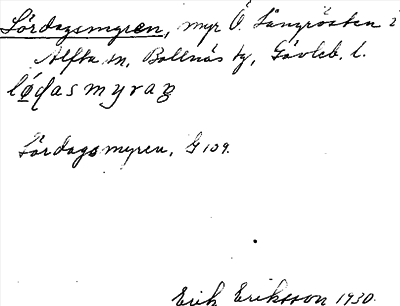 Lördagsmyren, myr Ö. Långrösten i
Alfta sn, Bollnäs tg, Gävleb. l.
lo̱dasmyraṇ
Lördagsmyren, G 109.
Erik Eriksson 1930.